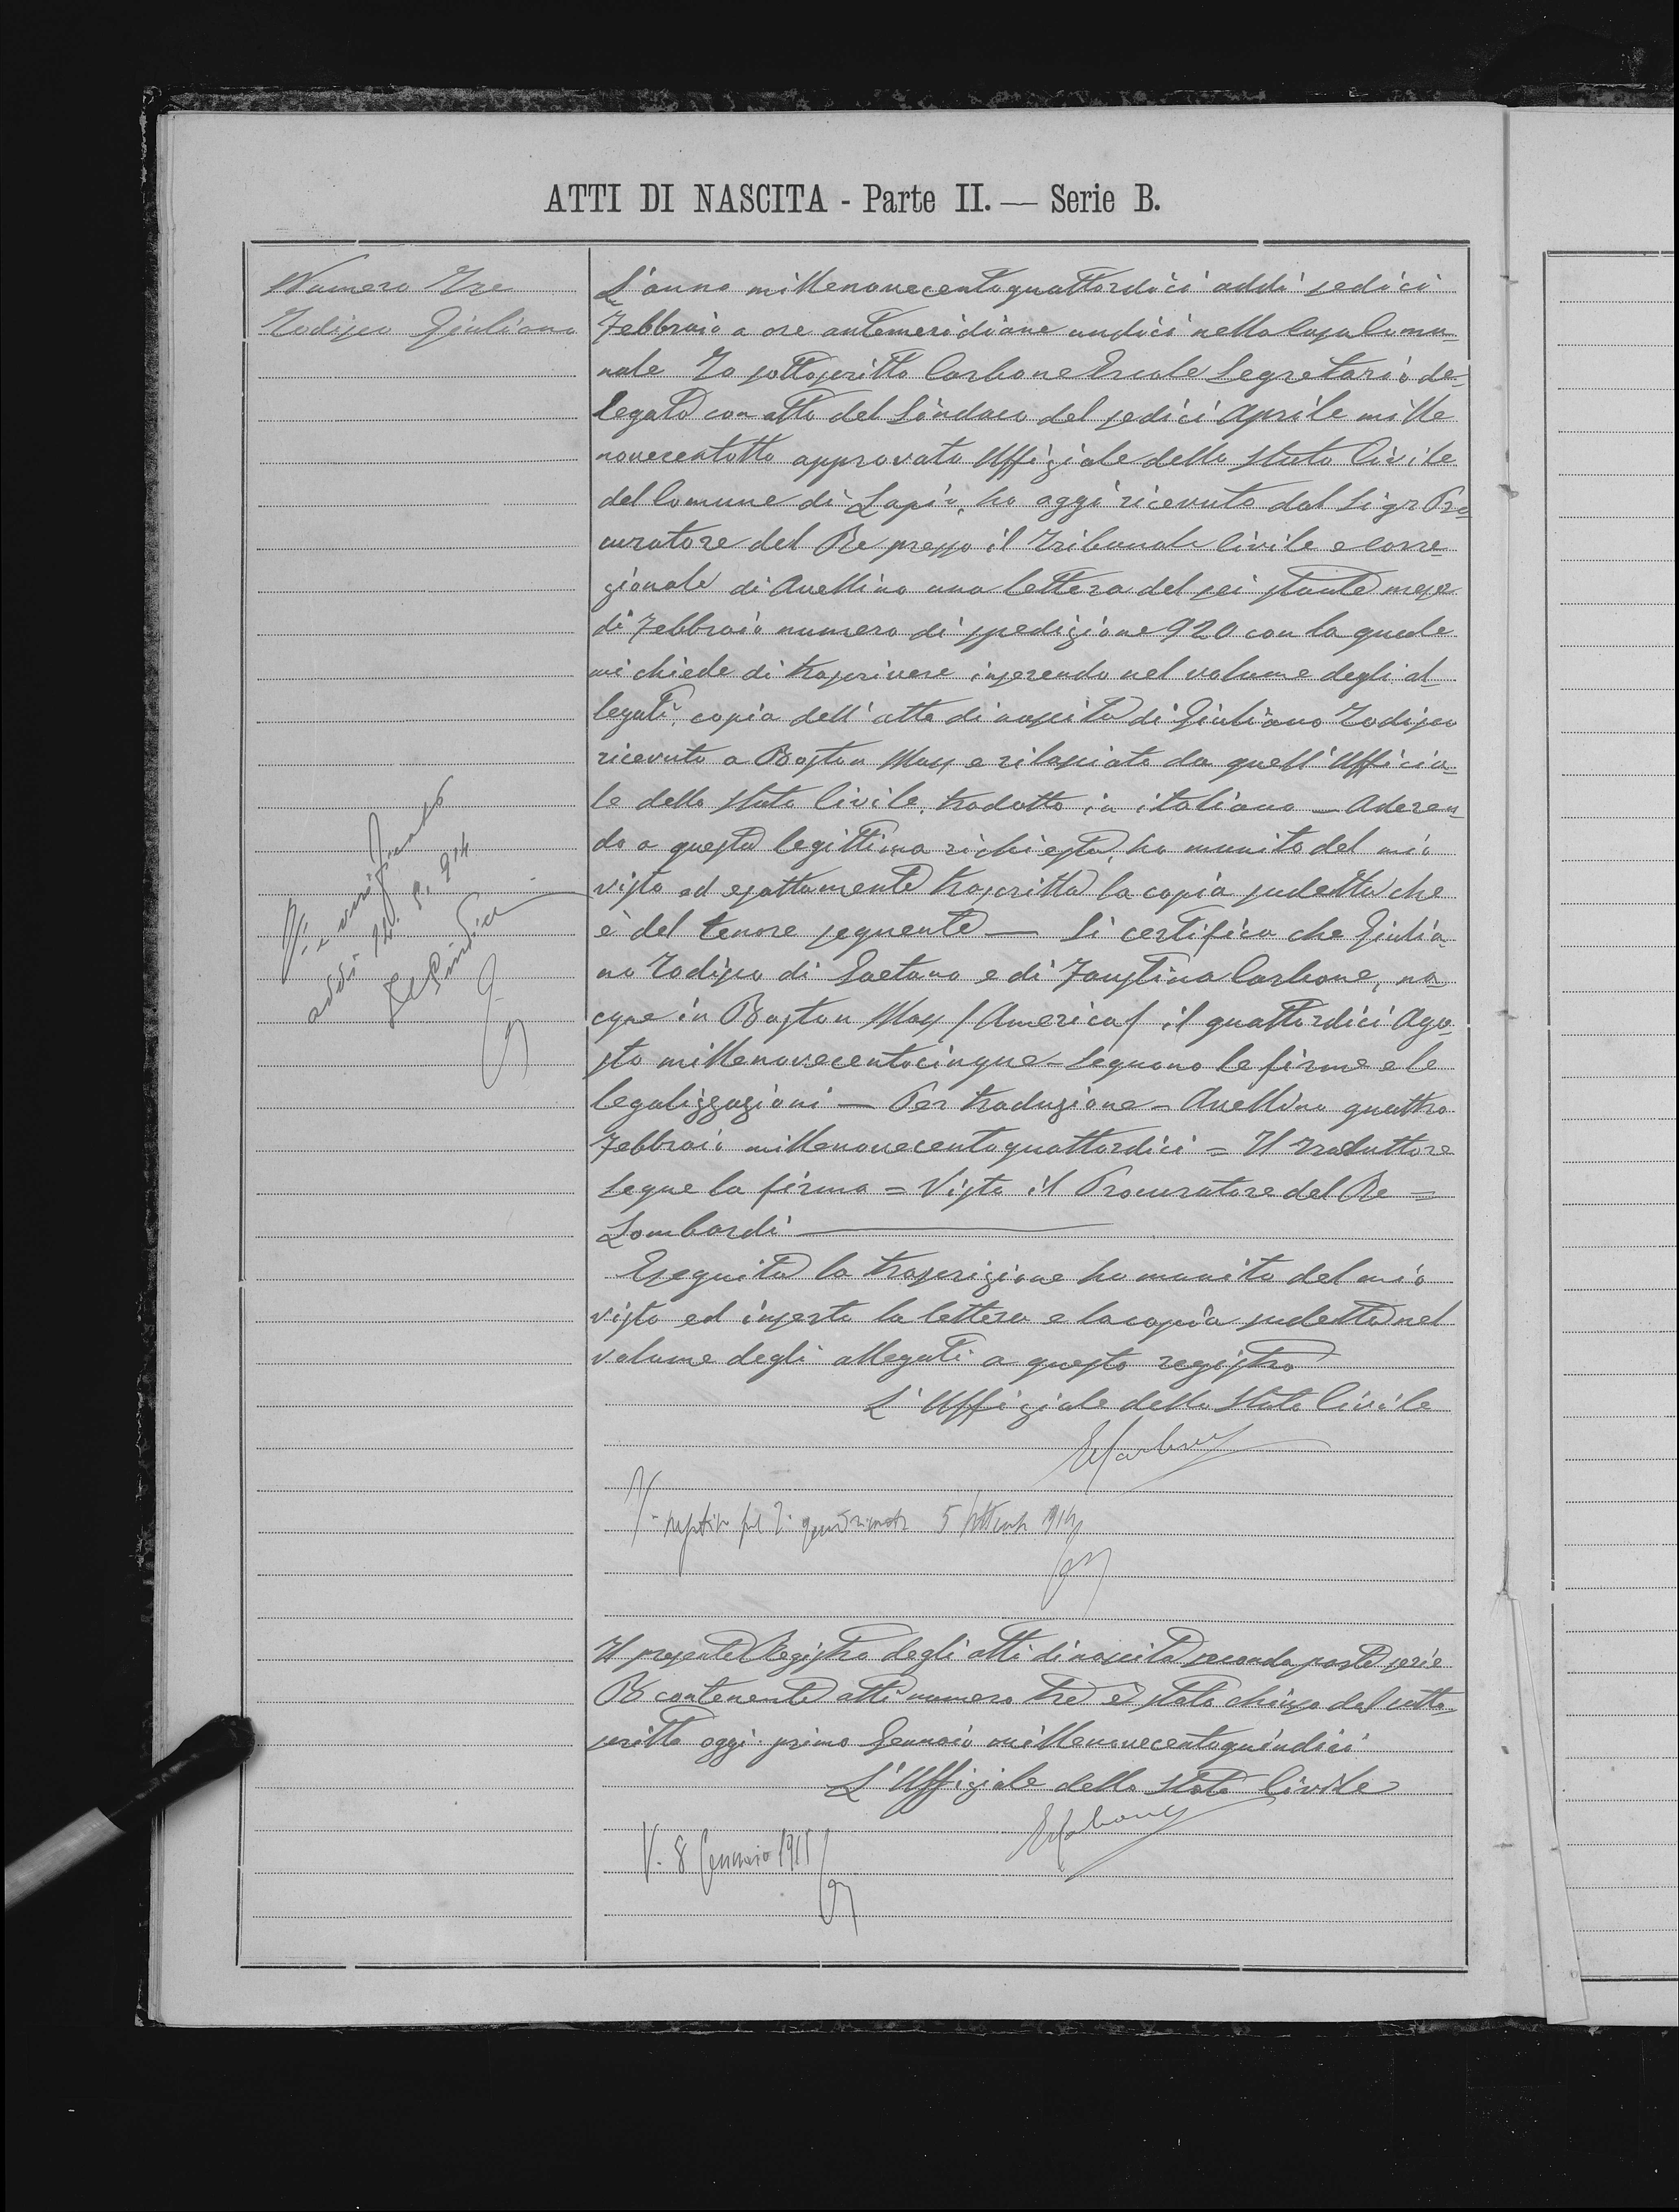 ATTI DI NASCITA - Parte II. — Serie B.
Numero Tre
Todisco Giuliano
L'anno millenovecentoquattordici addì sedici
Febbraio a ore antemeridiane undici nella Casa Comu-
nale Io sottoscritto Carbone Ercole Segretario de-
legato con atto del Sindaco del sedici Aprile mille
novecentotto approvato Uffiziale dello Stato Civile
del Comune di Lapio, ho oggi ricevuto dal Sigr Pro-
curatore del Re presso il Tribunale Civile e Corre-
zionale di Avellino una lettera del sei stante mese
di Febbraio numero di spedizione 920 con la quale
mi chiede di trascrivere inserendo nel volume degli al-
legati, copia dell'atto di nascita di Giuliano Todisco
ricevuto a Boston Mass e rilasciato da quell'Ufficia-
le dello Stato Civile, tradotto in italiano — Aderen-
do a questa legittima richiesta, ho munito del mio
visto ed esattamente trascritta la copia sudetta che
è del tenore seguente — Si certifica che Giulia-
no Todisco di Gaetano e di Faustina Carbone, na-
cque in Boston Mass (America) il quattordici Ago-
sto millenovecentocinque - Seguono le firme e le
legalizzazioni — Per traduzione - Avellino quattro
Febbraio millenovecentoquattordici = Il Traduttore
Segue la firma = Visto il Procuratore del Re =
Lombardi
Eseguita la trascrizione ho munito del mio
visto ed inserto la lettera e la copia sudetta nel
volume degli allegati a questo registro
L'Uffiziale dello Stato Civile
ECarbone
V. 5 1914
Il presente Registro degli atti di nascita seconda parte serie
B contenente atti numero tre è stato chiuso dal sotto-
scritto oggi primo Gennaio millenovecentoquindici
L'Uffiziale dello Stato Civile
ECarbone
V. 8 Gennaio 1915
addì 914